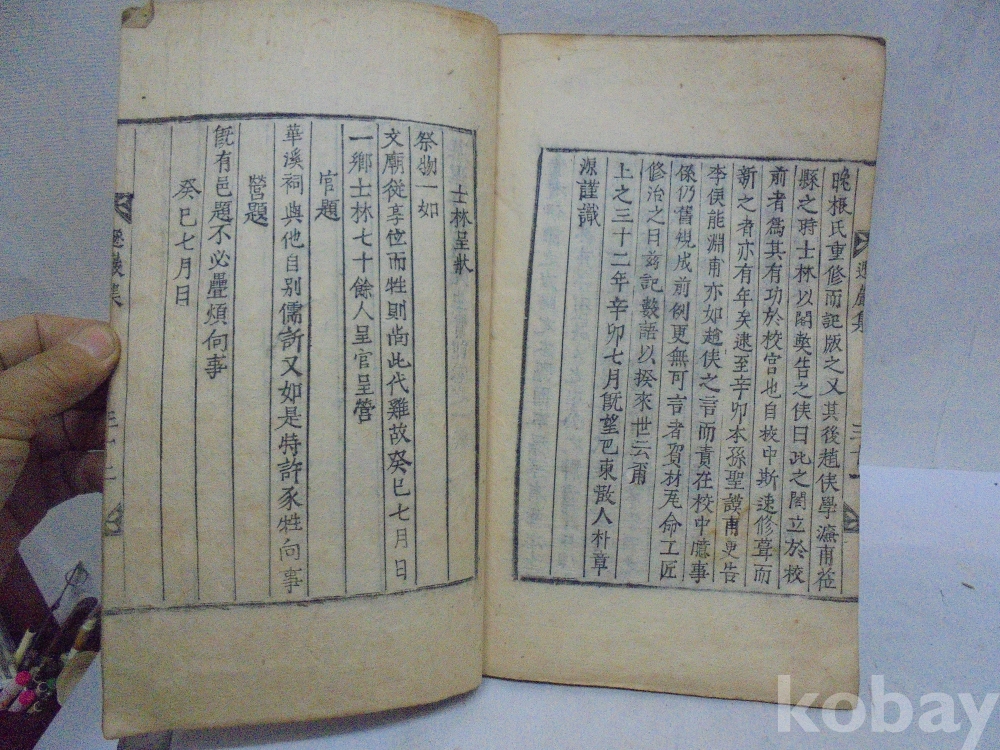 晩根氏重修而記版之又其後趙侯學濂甫莅
縣之時士林以閣奬告之侯曰此之閣立於校
前者爲其有功於校宮也自校中斯速修葺而
新之者亦有年矣逮至辛卯本孫聖謨甫更告
李侯能淵甫亦如趙侯之言而責在校中臆事
係仍舊規成前例更無可言者賀材瓦命工匠
修治之日玆記數語以揆來世云爾
上之三十二年辛卯七月旣望巴東散人朴章
源謹識
三十一
士林呈狀
祭物一如
文廟從享位而牲則尚此代雞故癸巳七月日
一鄉士林七十餘人呈官呈營
官題
華溪祠與他自别儒訴又如是特許豕牲向事
營題
旣有邑題不必疊煩向事
癸巳七月日
巖集
kobay